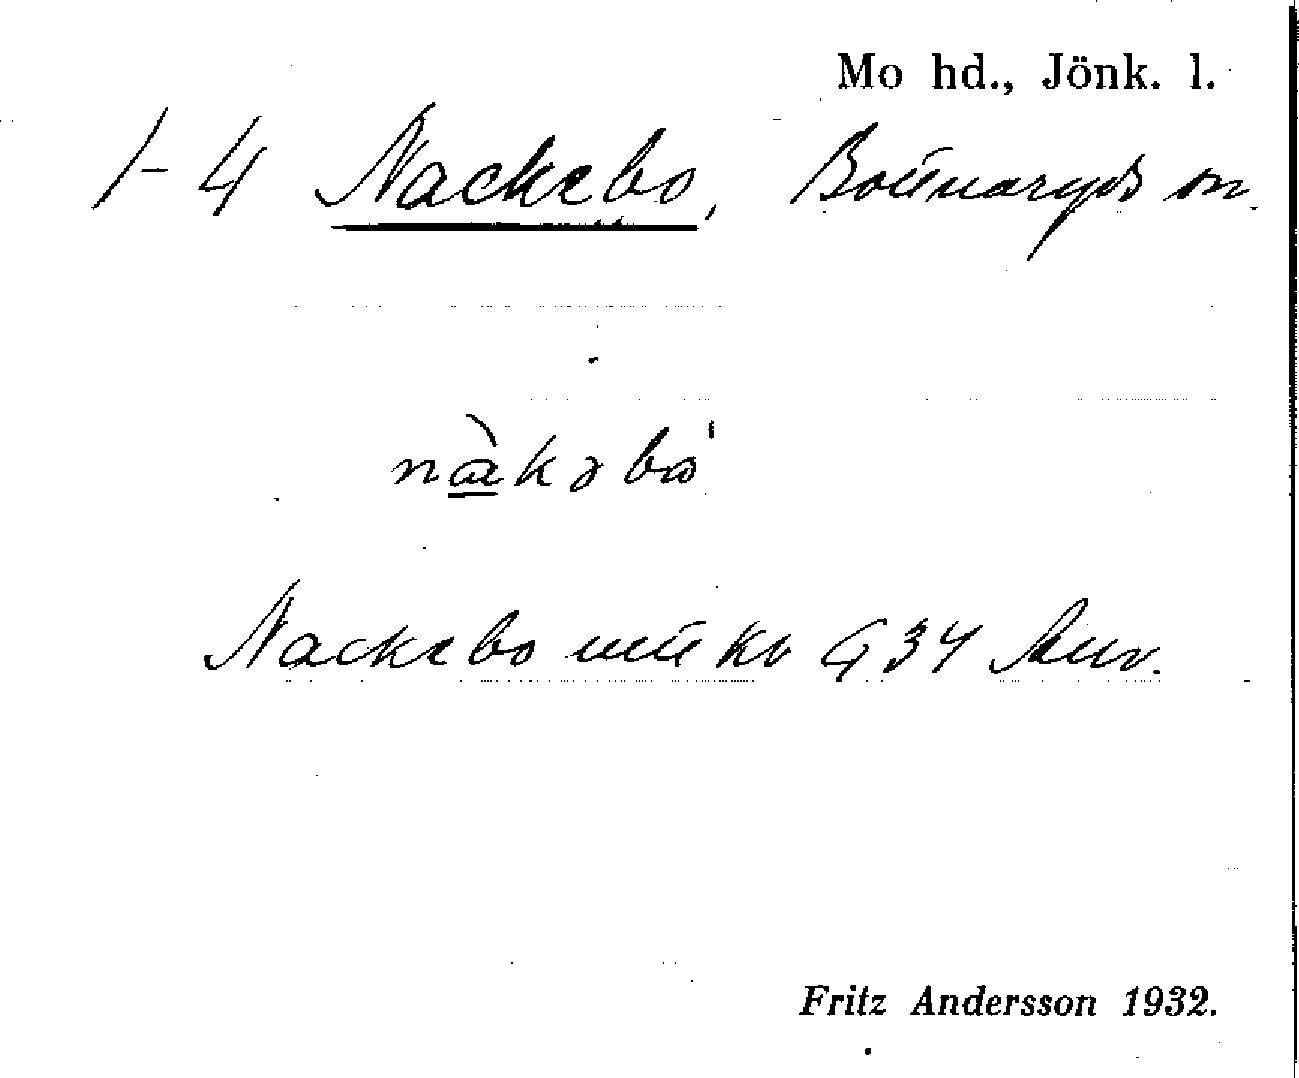 Mo hd., Jönk. l.
1-4 Nackebo, Bottnaryds sn
nàkəbo'
Nackebo G 34
Fritz Andersson 1932.